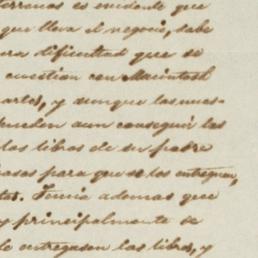 torranas es evidente que
que lleva el negocio, sabe
ra dificultad que se
cuestion con Macintosh
artes, y aunque las nues-
pueden aun conseguir las
los libros de su padre
casas para que se los entreguen,
tas. Temia ademas que
y principalmente se
le entregasen los libros, y